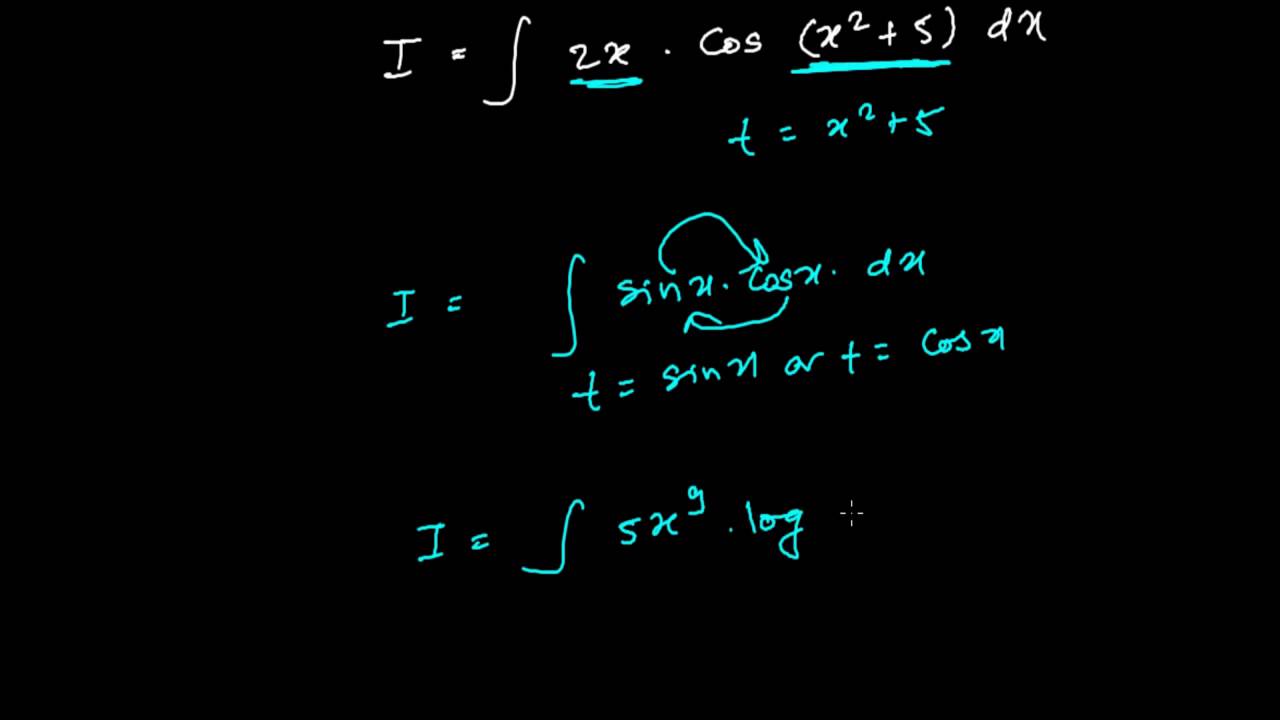 I = ∫ 2x · cos (x² + 5) dx
t = x² + 5
I = ∫ sinx · cosx · dx
t = sinx or t = cosx
I = ∫ 5x⁹ · log